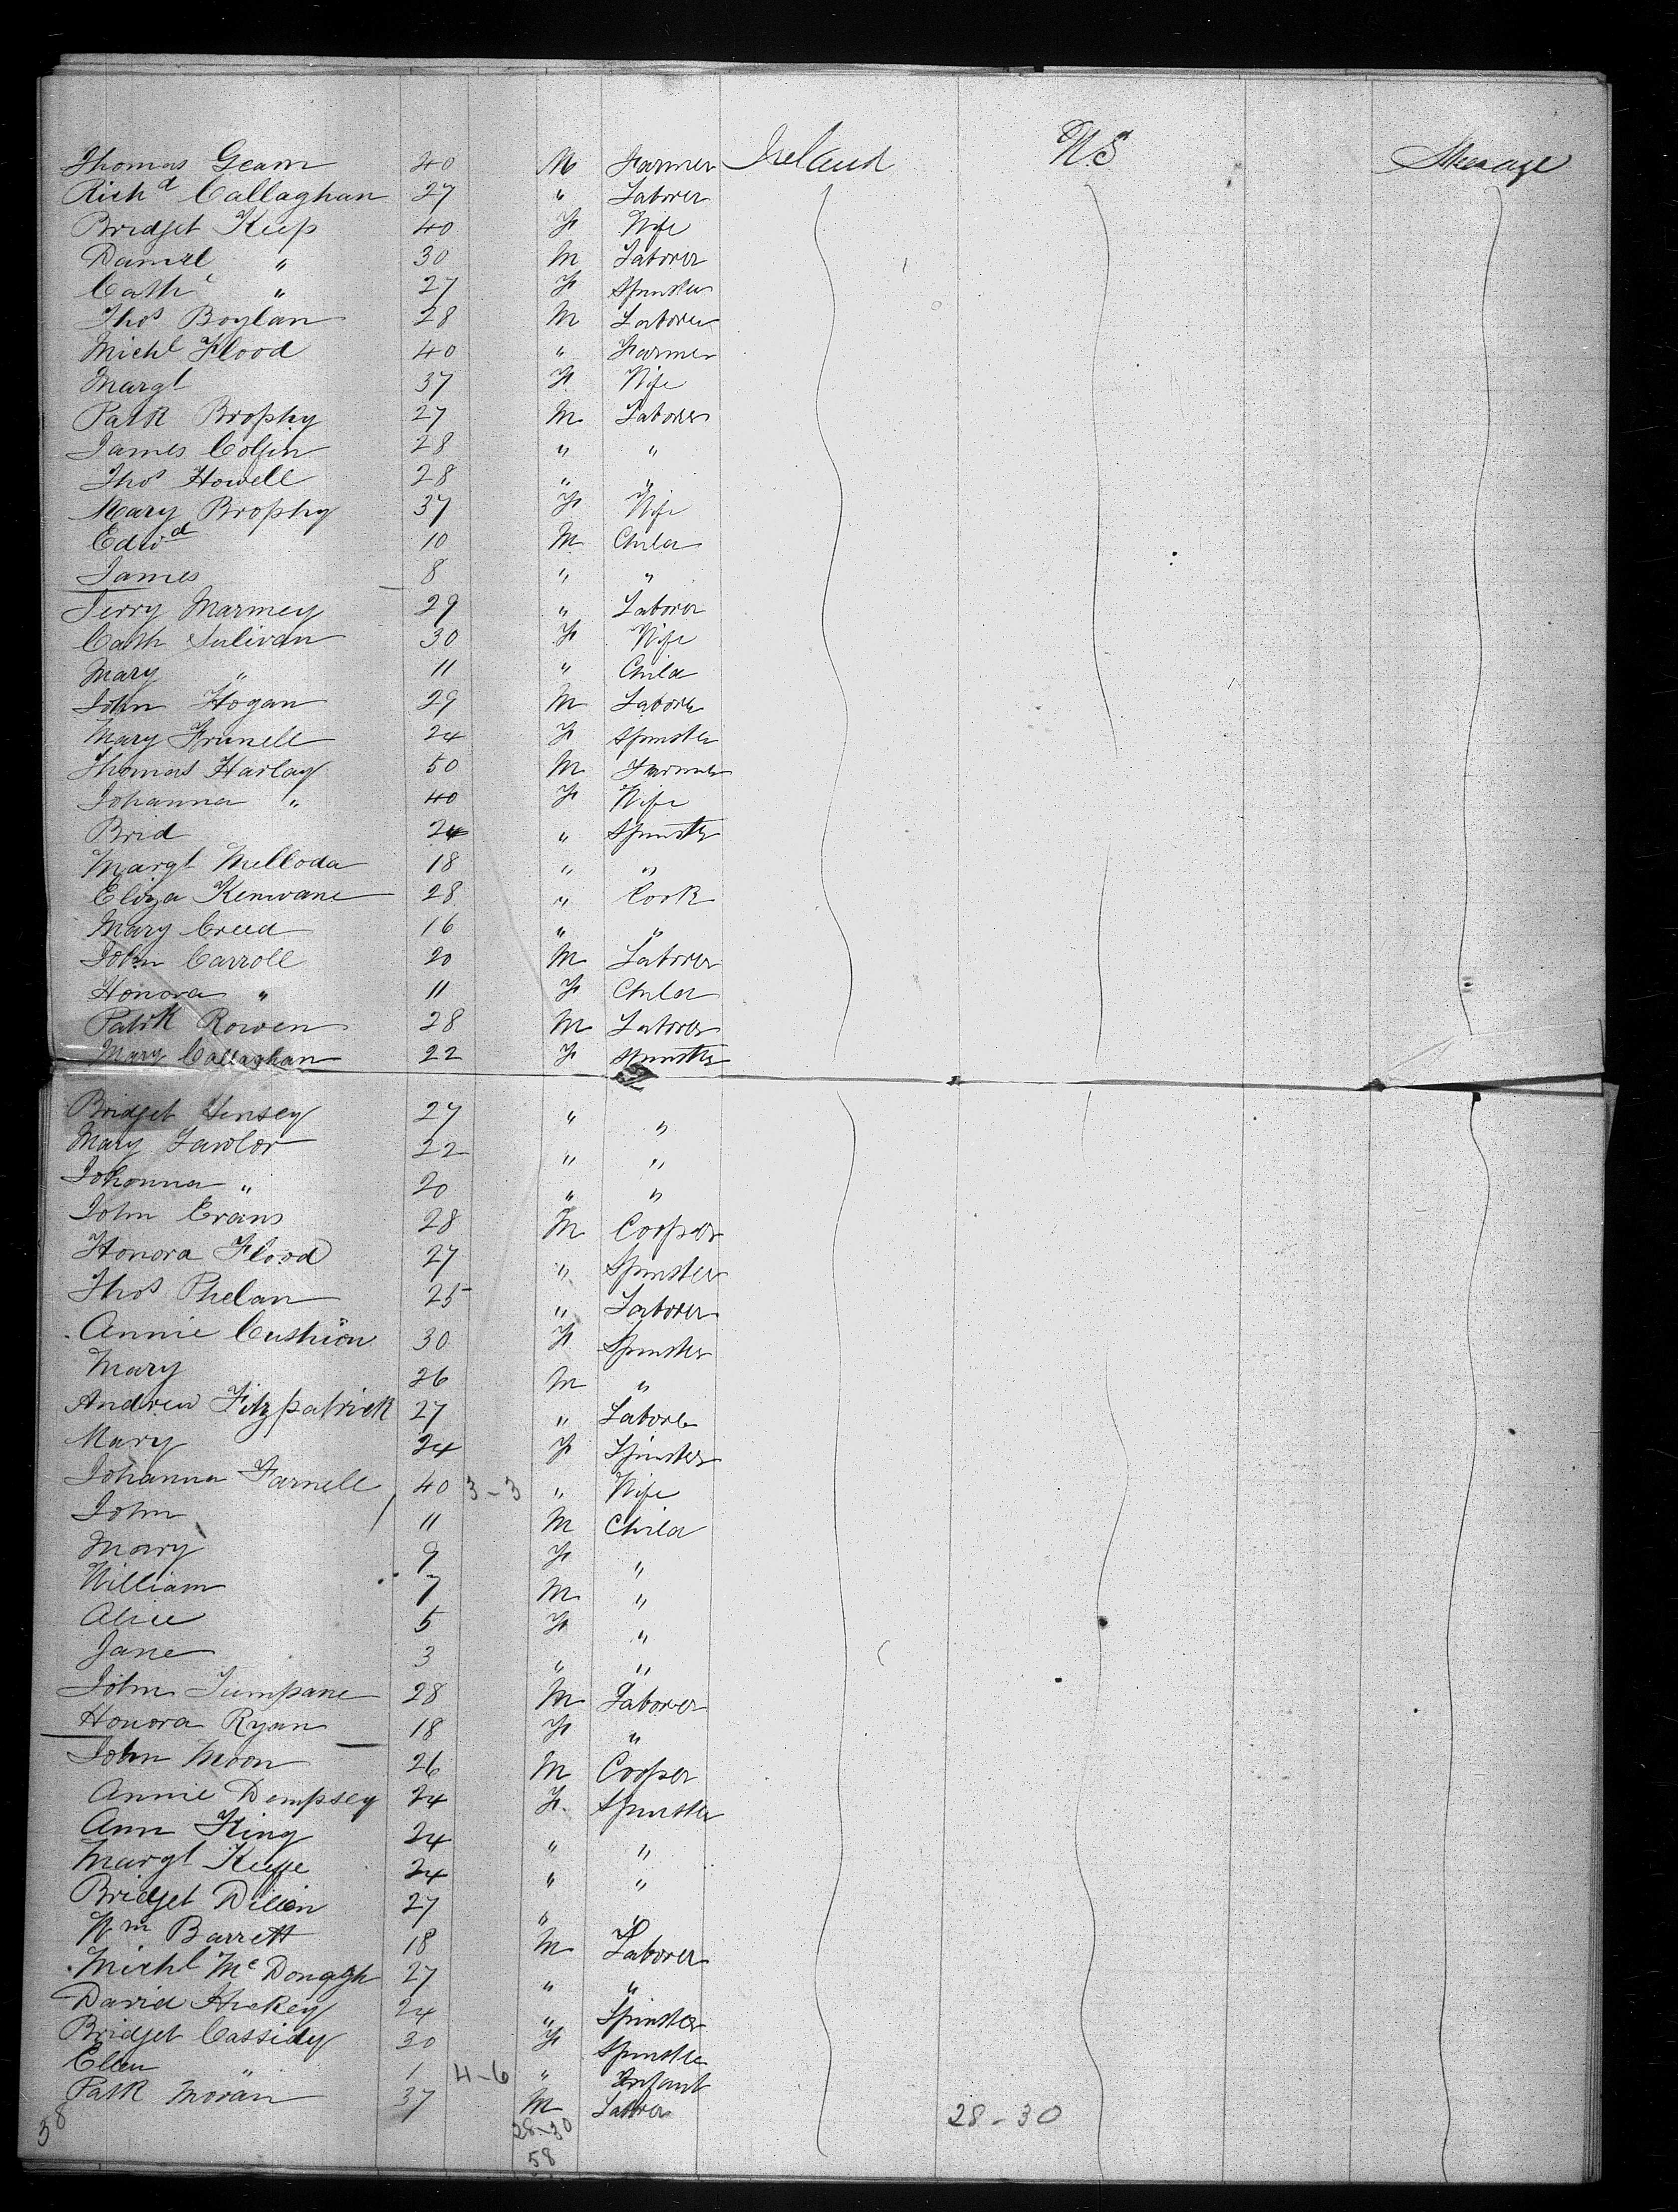 Thomas Geam 40 M Farmer Ireland US Steerage
Richd Callaghan 27 " Laborer
Bridget Keep 40 F Wife
Daniel " 30 M Laborer
Cathe " 27 F Spinster
Thos Boylan 28 M Laborer
Michl Flood 40 " Farmer
Margt 37 F Wife
Patk Brophy 27 M Laborer
James Colfin 28 " "
Thos Howell 28 " "
Mary Brophy 37 F Wife
Edwd 10 M Child
James 8 " "
Jerry Marmey 29 " Laborer
Cath Sulivan 30 F Wife
Mary " 11 " Child
John Hogan 29 M Laborer
Mary Frunell 24 F Spinster
Thomas Harlay 50 M Farmer
Johanna " 40 F Wife
Brid 24 " Spinster
Margt Melloda 18 " "
Eliza Kenwane 28 " Cook
Mary Creed 16 " "
John Carroll 20 M Laborer
Honora " 11 F Child
Patrk Rowen 28 M Laborer
Mary Callaghan 22 F Spinster
Bridget Hensey 27 " "
Mary Lawlor 22 " "
Johanna " 20 " "
John Evans 28 M Cooper
Honora Flood 27 " Spinster
Thos Phelan 25 " Laborer
Annie Cushion 30 F Spinster
Mary 26 M "
Andrew Fitzpatrick 27 " Laborer
Mary 24 F Spinster
Johanna Farnell 40 3-3 " Wife
John 11 M Child
Mary 9 F "
William 7 M "
Alice 5 F "
Jane 3 " "
John Tumpane 28 M Laborer
Honora Ryan 18 F "
John Moon 26 M Cooper
Annie Dempsey 24 F Spinster
Ann King 24 " "
Margt Keffe 24 " "
Bridget Dillon 27 " "
Wm Barrett 18 M Laborer
Michl McDonagh 27 " "
David Hickey 24 " Spinster
Bridget Cassidy 30 F Spinster
Ellen " 1 4-6 " Infant
Patk Moran 37 M Laborer
38 28-30 28-30
58